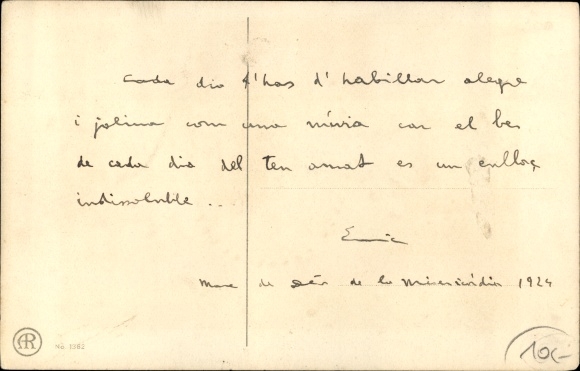 cada dia t'has d'habillar alegre
i jolina com una núvia car el bes
de cada dia del teu amat es un enllaç
indissoluble ...
Enric
Mare de de la Misericórdia 1924
AR
No 1382
10.-